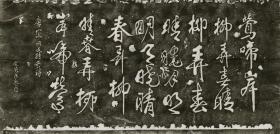 鶯啼岸
柳弄春晴
柳弄春
晴曉月明
明月曉晴
春弄柳
晴春弄柳
岸啼鶯